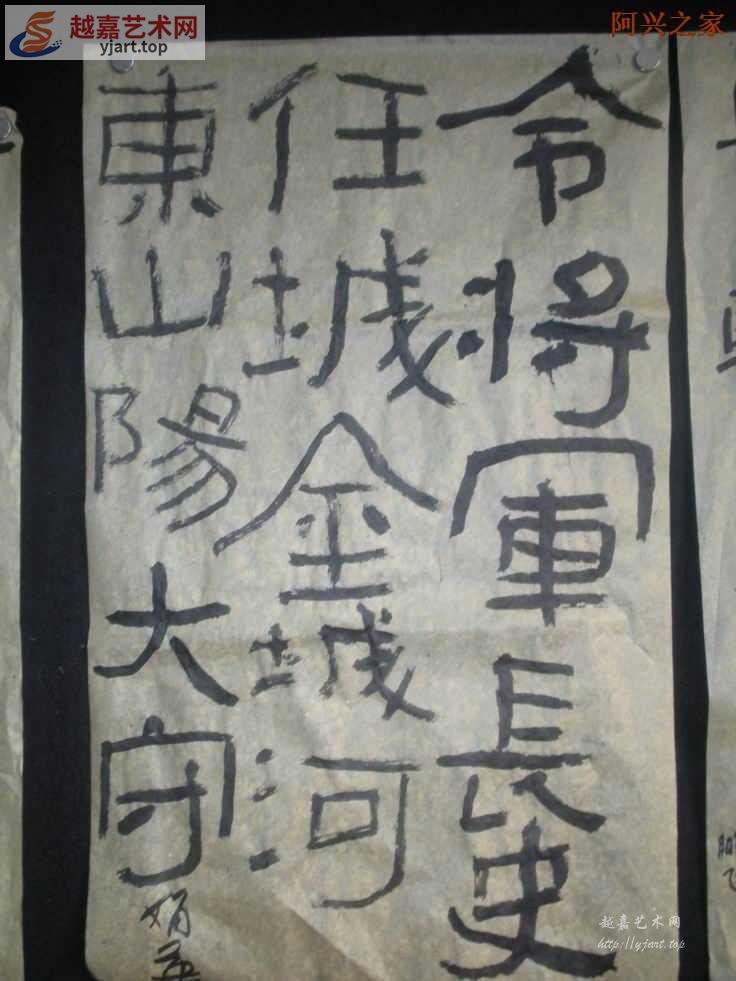 越嘉艺术网
yjart.top
阿兴之家
令将軍長史
任城金城河
東山陽大守
越嘉艺术网
http://yjart.top